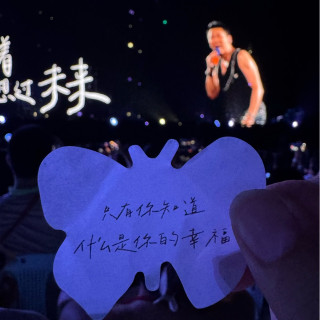 着
想过未来
只有你知道
什么是你的幸福